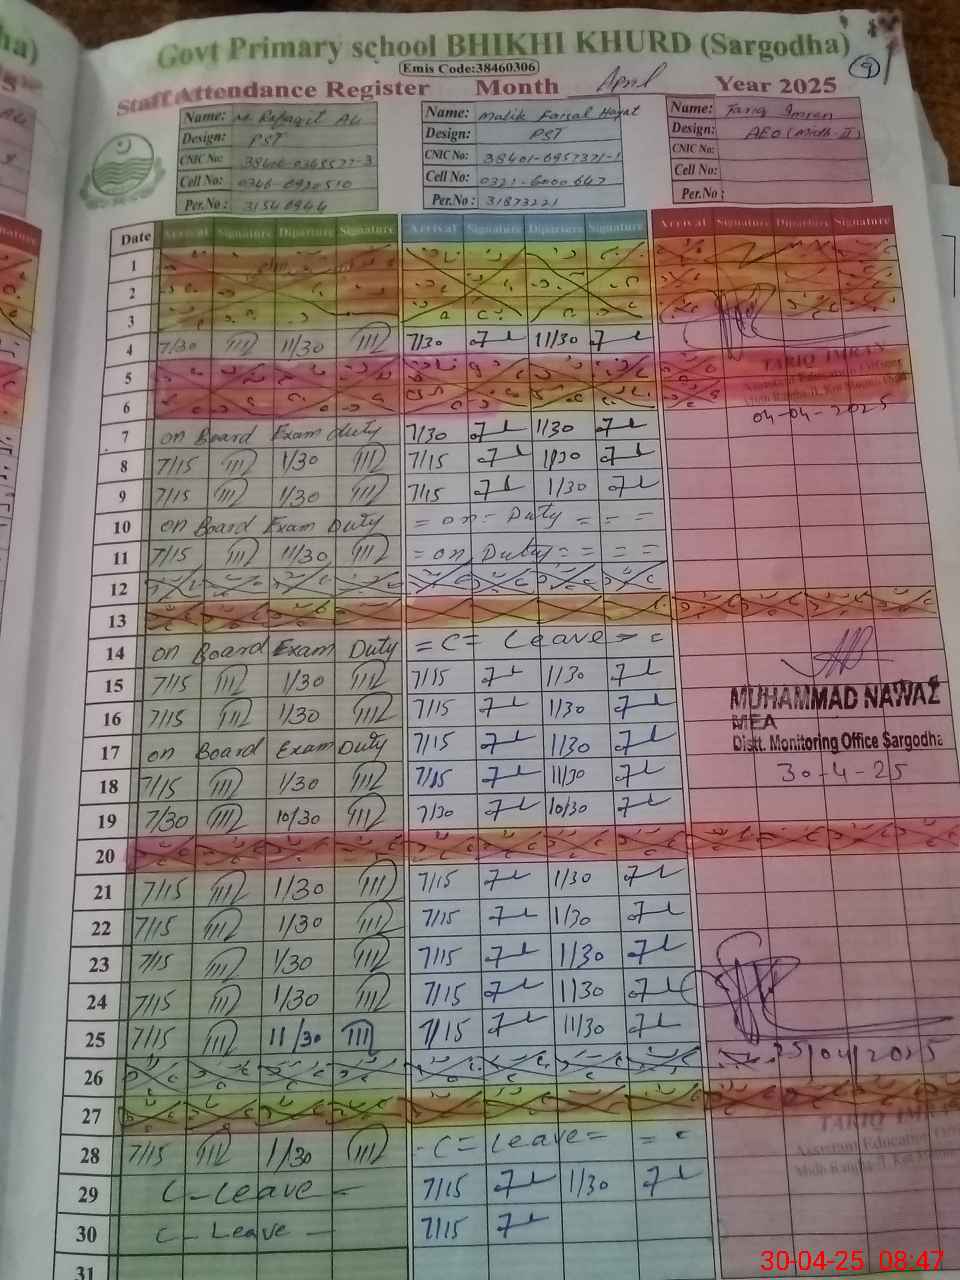 Govt Primary school BHIKHI KHURD (Sargodha)
Emis Code:38460306
9
Staff Attendance Register Month April Year 2025
Name: M. Rafaqit Ali Name: Malik Faisal Hayat Name: Tariq Imran
Design: PST Design: PST Design: AEO (Midh-II)
CNIC No: CNIC No: 38401-6957371-1 CNIC No:
Cell No: 0346-8920510 Cell No: 0321-6000647 Cell No:
Per.No: 31540944 Per.No: 31873221 Per.No:
Date Arrival Signature Diparture Signature Arrival Signature Diparture Signature Arrival Signature Diparture Signature
1
2
3
4 7/30 11/30 7/30 11/30
TARIQ IMRAN
5
Assistant Education Officer
6
04-04-2025
7 on Board Exam duty 7/30 1/30
8 7/15 1/30 7/15 1/30
9 7/15 1/30 7/15 1/30
10 on Board Exam Duty = on = Duty = = =
11 7/15 11/30 = on Duty = = = =
12
13
14 on Board Exam Duty = C = Leave = =
15 7/15 1/30 7/15 1/30
MUHAMMAD NAWAZ
16 7/15 1/30 7/15 1/30
MEA
17 on Board Exam Duty 7/15 1/30
Distt. Monitoring Office Sargodha
18 7/15 1/30 7/15 11/30
30-4-25
19 7/30 10/30 7/30 10/30
20
21 7/15 1/30 7/15 1/30
22 7/15 1/30 7/15 1/30
23 7/15 1/30 7/15 1/30
24 7/15 1/30 7/15 1/30
25 7/15 11/30 7/15 11/30
25/04/2025
26
27
TARIQ IMRAN
28 7/15 1/30 - C = Leave = = =
Assistant Education
29 C - Leave - 7/15 1/30
30 C - Leave - 7/15
31
30-04-25 08:47